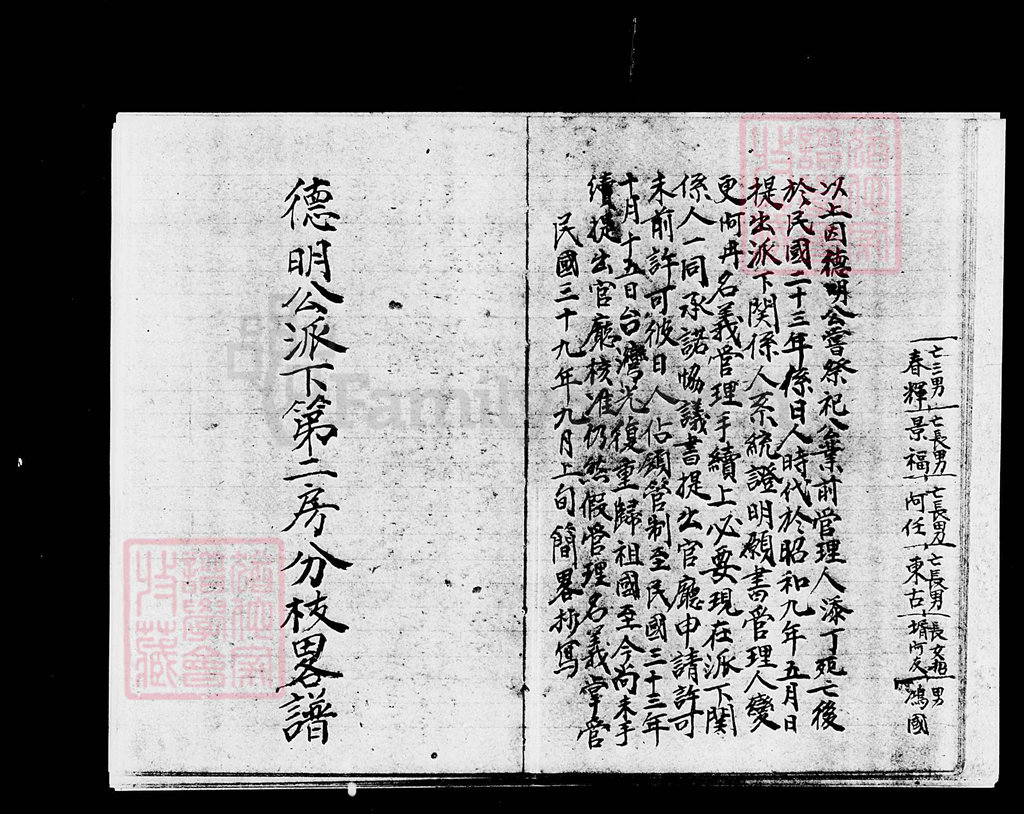 亡三男 亡長男 亡長男 亡長男 長女 男
春輝 景福 阿任 東古 壻阿 鴻國
以上因德明公嘗祭祀公業前管理人添丁死亡後
於民國二十三年係日人時代於昭和九年五月日
提出派下関係人系統證明願書管理人變
更阿冉名義管理手續上必要現在派下関
係人一同承諾協議書提出官廳申請許可
未前許可彼日人佔領管制至民國三十三年
十月十五日台灣光復重歸祖國至今尚未手
續提出官廳核准仍然假管理名義掌管
民國三十九年九月上旬簡畧抄寫
德明公派下第二房分枝畧譜
Famil